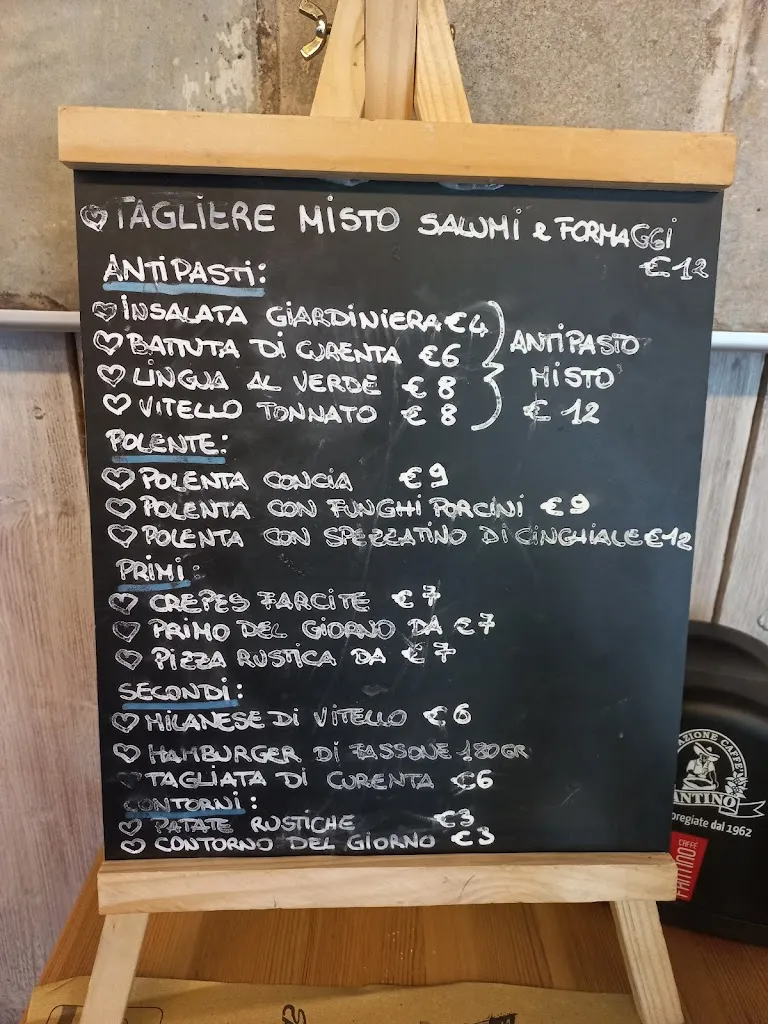 TAGLIERE MISTO SALUMI e FORMAGGI
€ 12
ANTIPASTI:
INSALATA GIARDINIERA €4
BATTUTA DI CURENTA €6
LINGUA AL VERDE € 8
VITELLO TONNATO € 8
ANTIPASTO
MISTO
€ 12
POLENTE:
POLENTA CONCIA €9
POLENTA CON FUNGHI PORCINI €9
POLENTA CON SPEZZATINO DI CINGHIALE €12
PRIMI:
CREPES FARCITE €7
PRIMO DEL GIORNO DA €7
PIZZA RUSTICA DA €7
SECONDI:
MILANESE DI VITELLO €6
HAMBURGER DI FASSONE 180GR
TAGLIATA DI CURENTA €6
CONTORNI:
PATATE RUSTICHE €3
CONTORNO DEL GIORNO €3
AZIONE CAFFE'
ANTINO
pregiate dal 1962
CAFFÈ
FANTINO